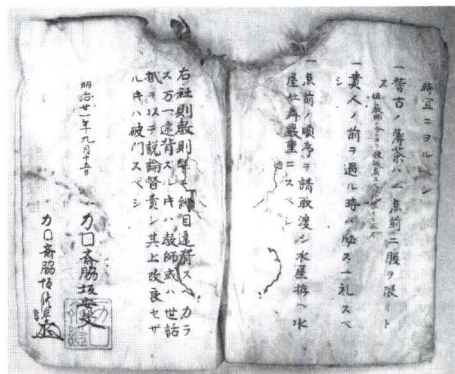 時宜ニヨルベシ
一稽古ノ薄茶ハ一点前ニ服ヲ限リト
ス
一貴人ノ前ヲ過ル時ハ必ス一礼スベ
シ
一点前ノ順序ヲ請取渡シ水屋拵ヘ水
屋仕舞厳重ニスベシ
右社則教則等ノ細目違背スベカラ
ス万一違背スルトキハ教師或ハ世話
掛ヨリ以テ説諭督責シ其上改良セザ
ルトキハ破門スベシ
明治廿一年九月十五日
力口斎脇坂安斐
力口斎脇坂